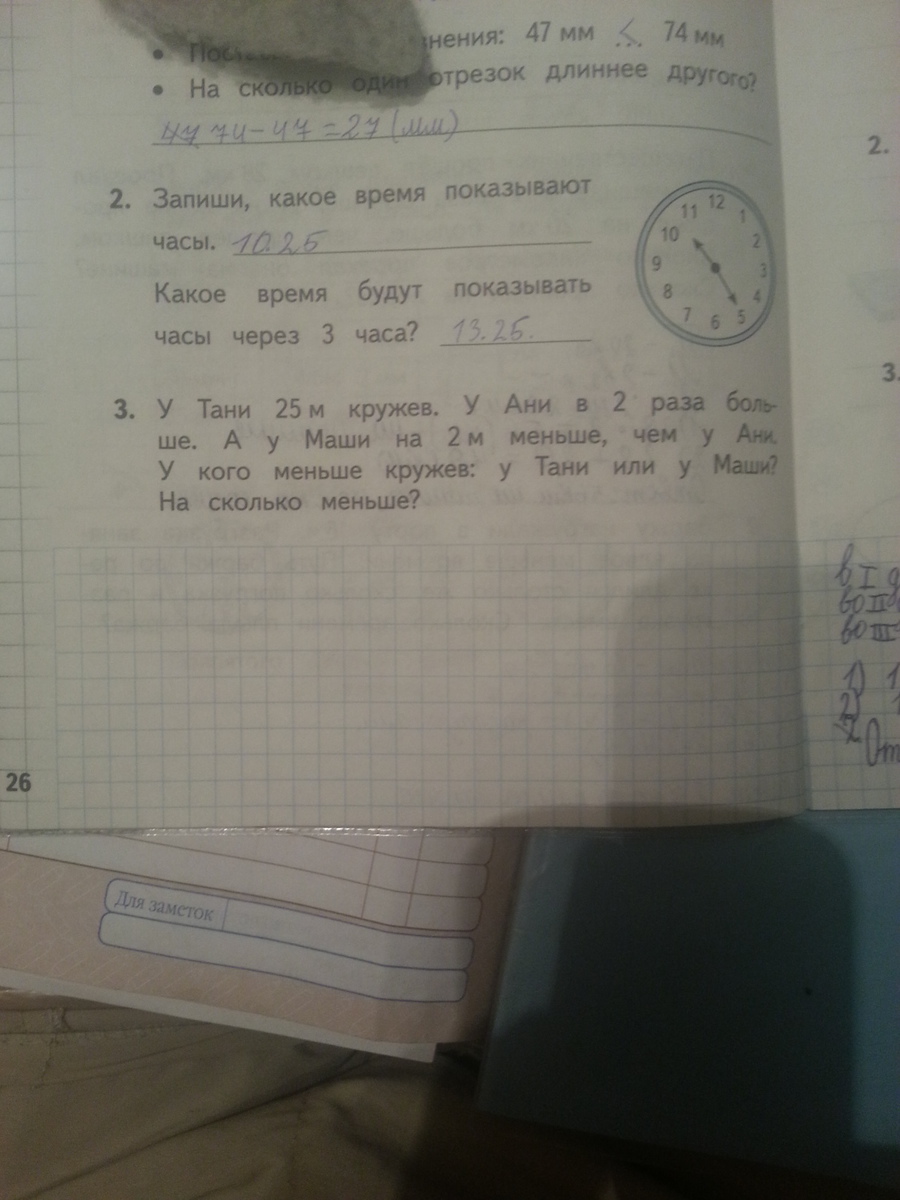 47 мм < 74 мм
• На сколько один отрезок длиннее другого?
47 74-47=27(мм)
2. Запиши, какое время показывают
часы. 10.25
Какое время будут показывать
часы через 3 часа? 13.25.
12
11
1
10
2
9
3
8
4
7
6
5
3. У Тани 25 м кружев. У Ани в 2 раза боль-
ше. А у Маши на 2 м меньше, чем у Ани.
У кого меньше кружев: у Тани или у Маши?
На сколько меньше?
26
Для заметок
2.
3.
в I
во II
во III
1) 1
2) 1
От